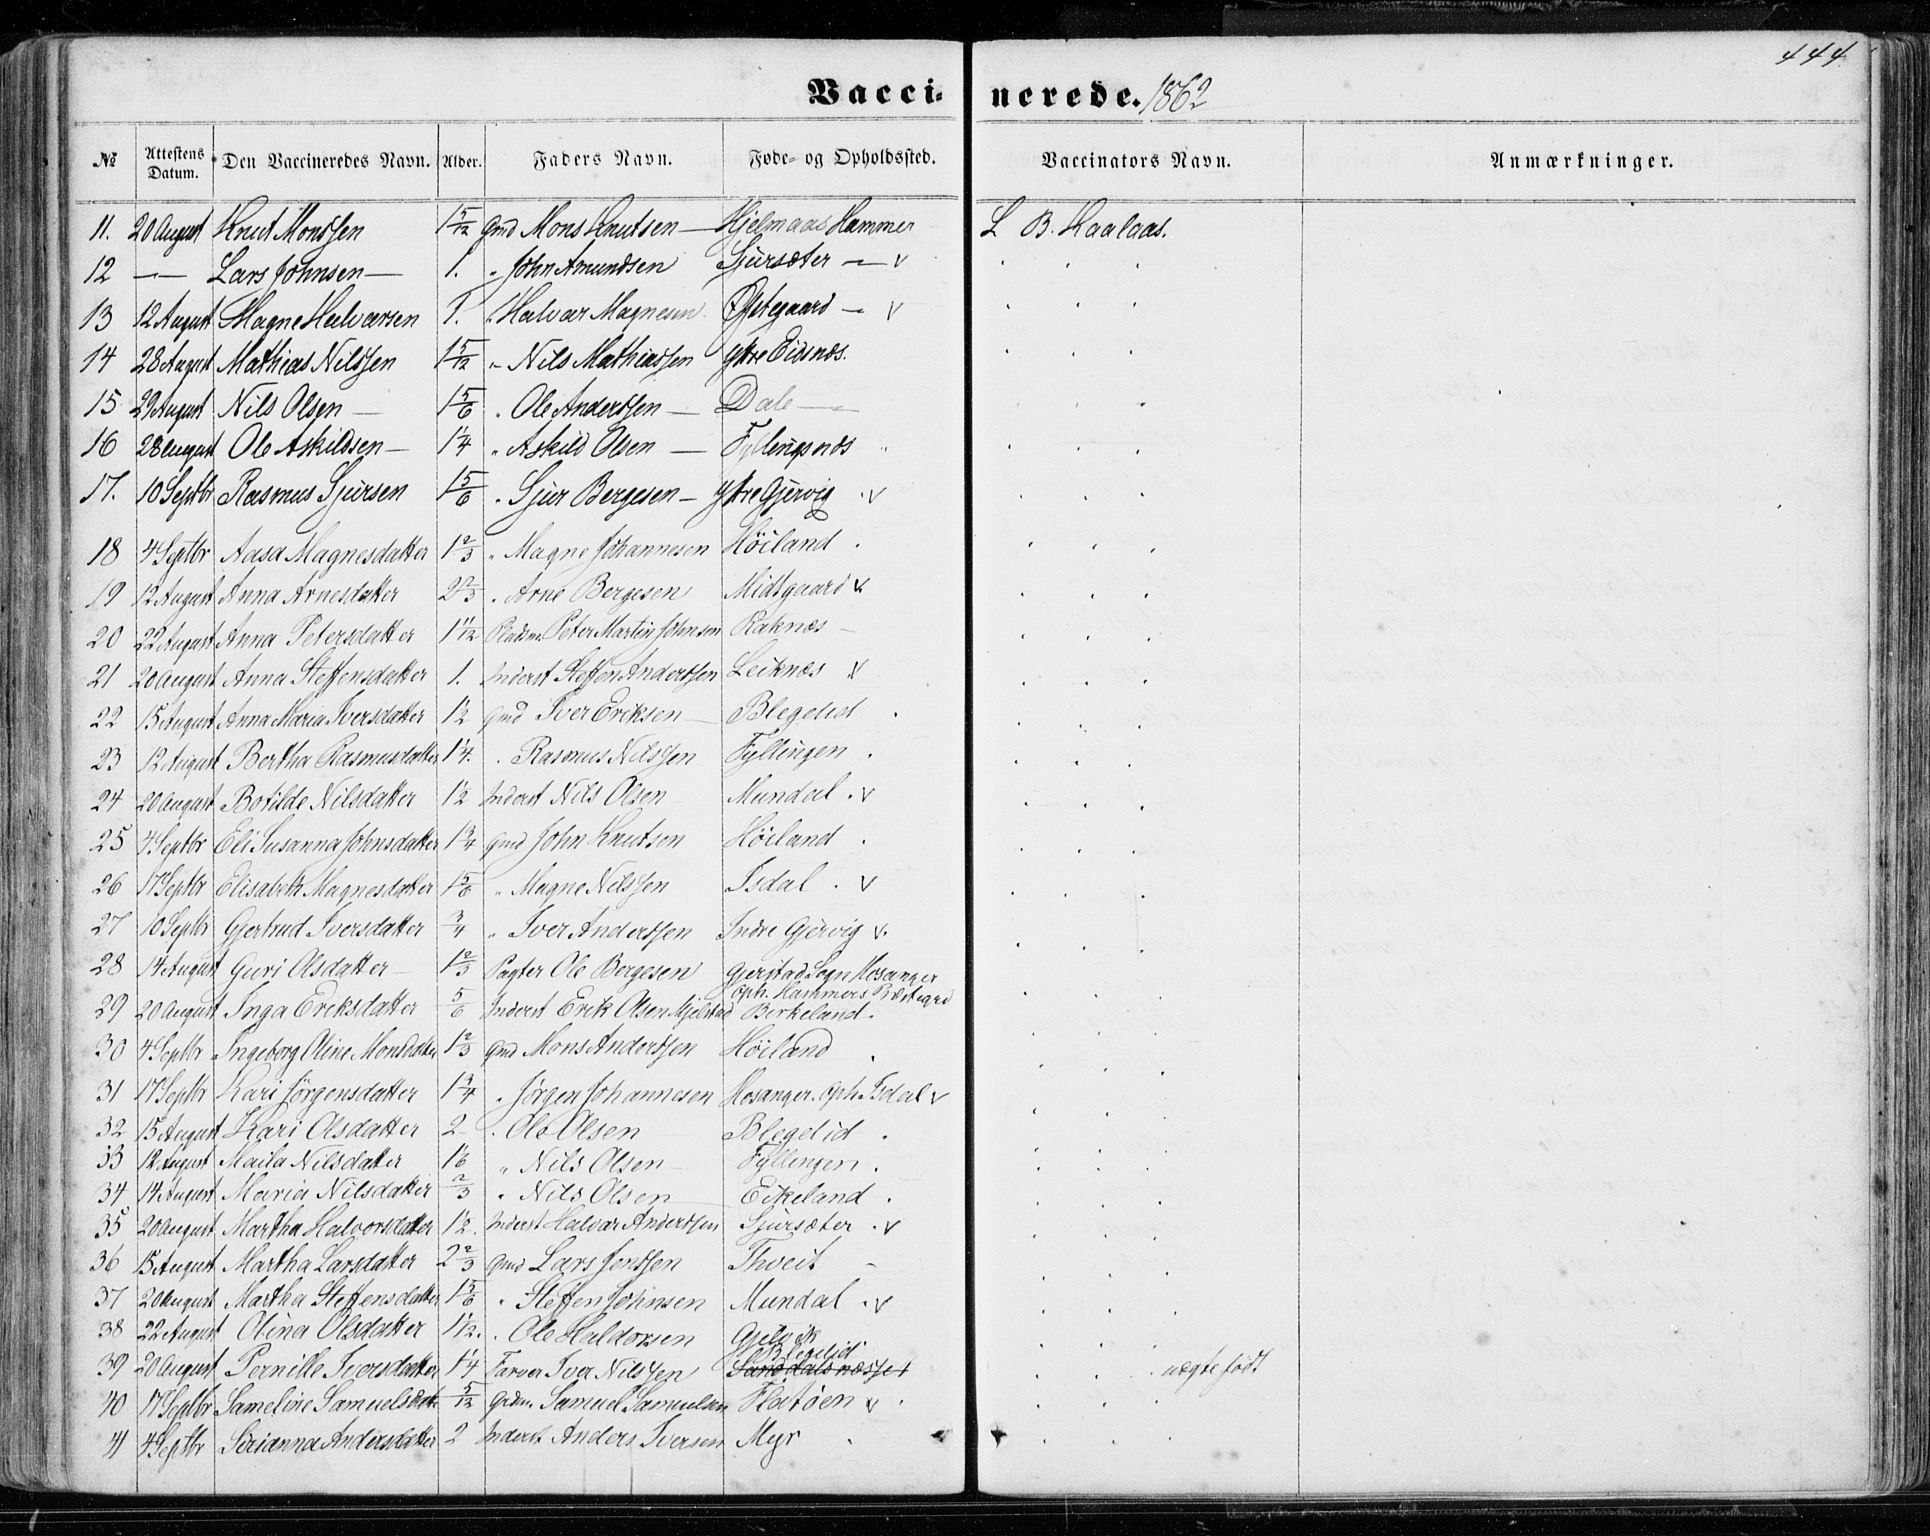 444
Vaccinerede. 1862
№ Attestens Datum. Den Vaccineredes Navn. Alder. Faders Navn. Føde- og Opholdssted. Vaccinators Navn. Anmærkninger.
11. 20 August Knut Monssen 1 5/12 Gmd Mons Knutsen — Hjelmaas Hammer L B. Kaalaas.
12 — Lars Johnsen — 1. " John Amundsen Sjursæter — v
13 12 August Magne Halvarsen 1. " Halvar Magnesen Østegaard — v
14 28 August Mathias Nilssen 1 5/12 " Nils Mathiassen Ytre Eidsnæs.
15 29 August Nils Olsen — 1 5/6 " Ole Anderssen — Dale —
16 28 August Ole Askildsen — 1 1/4 " Askild Olsen — Fyllingsnæs "
17. 10 Septbr Rasmus Sjursen 1 5/6 " Sjur Bergesen — Ytre Gjervig v
18 4 Septbr Aasa Magnesdatter 1 2/3 " Magne Johannesen Høiland "
19 12 August Anna Arnesdatter 2 2/3 " Arne Bergesen Midtgaard v
20 22 August Anna Petersdatter 1 11/12 Pladsm. Peter Martin Johnsen Raknæs —
21 20 August Anna Steffensdatter 1. Inderst Steffen Anderssen Leiknæs v
22 15 August Anna Maria Iversdatter 1 1/2 Gmd Iver Eriksen — Blegelid "
23 12 August Bertha Rasmusdatter 1 1/4. " Rasmus Nilssen Fyllingen "
24 20 August Botilde Nilsdatter 1 1/2 Inderst Nils Olsen Mundal " v
25 4 Septbr Eli Susanna Johnsdatter 1 3/4 Gmd John Knutsen Høiland "
26 17 Septbr Elisabeth Magnesdatter 1 5/6 " Magne Nilssen Isdal " v
27 10 Septbr Gjertrud Iversdatter 3/4 " Iver Anderssen Indre Gjervig v
28 14 August Guri Olsdatter — 1 2/3 Pagter Ole Bergesen Gjerstad Sogn Hosanger Oph. Hammers Præstegrd
29 20 August Inga Eriksdatter 5/6 Inderst Erik Olsen Mjelstad Birkeland.
30 4 Septbr Ingeborg Oline Monsdatter 1 2/3 Gmd Mons Anderssen Høiland "
31 17 Septbr Kari Jörgensdatter 1 3/4 " Jörgen Johannesen Hosanger. Oph. Isdal v
32 15 August Kari Olsdatter 2 " Ole Olsen Blegelid "
33 12 August Maila Nilsdatter 1 1/6 " Nils Olsen — Fyllingen "
34 14 August Maria Nilsdatter 2/3 " Nils Olsen — Eikeland "
35 20 August Martha Halvorsdatter 1 1/2. Inderst Halvar Anderssen Sjursæter " v
36 15 August Martha Larsdatter 2 2/3 Gmd Lars Jenssen Thveit —
37 20 August Martha Steffensdatter 1 5/6 " Steffen Johnsen Mundal " v
38 22 August Olina Olsdatter 1 1/12. " Ole Haldorsen Gjelvik
39 20 August Pernille Iversdatter 1 1/4 Farver Iver Nilssen Blegelid Sanddalsnæsset uægte født
40 17 Septbr Sameline Samuelsdatter 5/12 Grdm. Samuel Samuelsen Flatøen v "
41 4 Septbr Sirianna Andersdatter 2 Inderst Anders Iversen Myr "